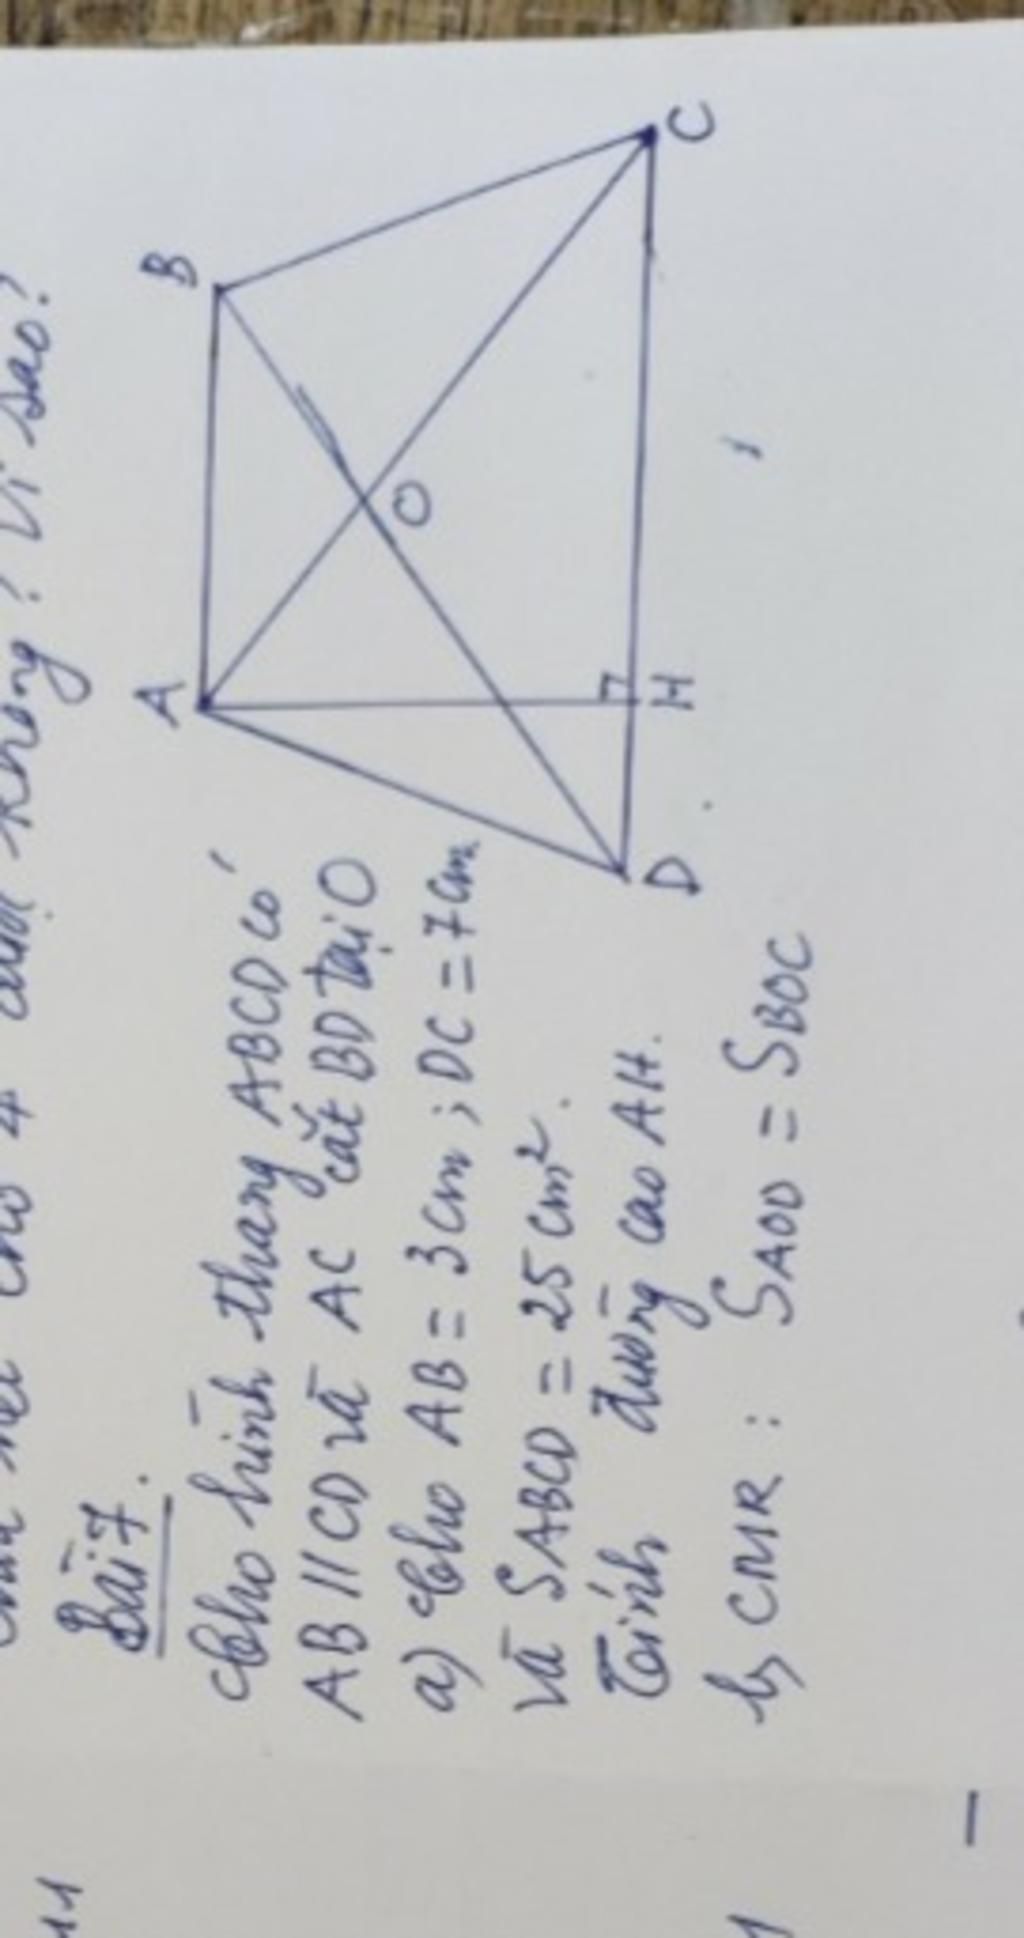 cho 4 được không? Vì sao?
Bài 7.
Cho hình thang ABCD có
AB // CD và AC cắt BD tại O
a) Cho AB = 3cm ; DC = 7cm
và SABCD = 25 cm².
Tính đường cao AH.
b, CMR : SAOD = SBOC
A
B
O
D
H
C